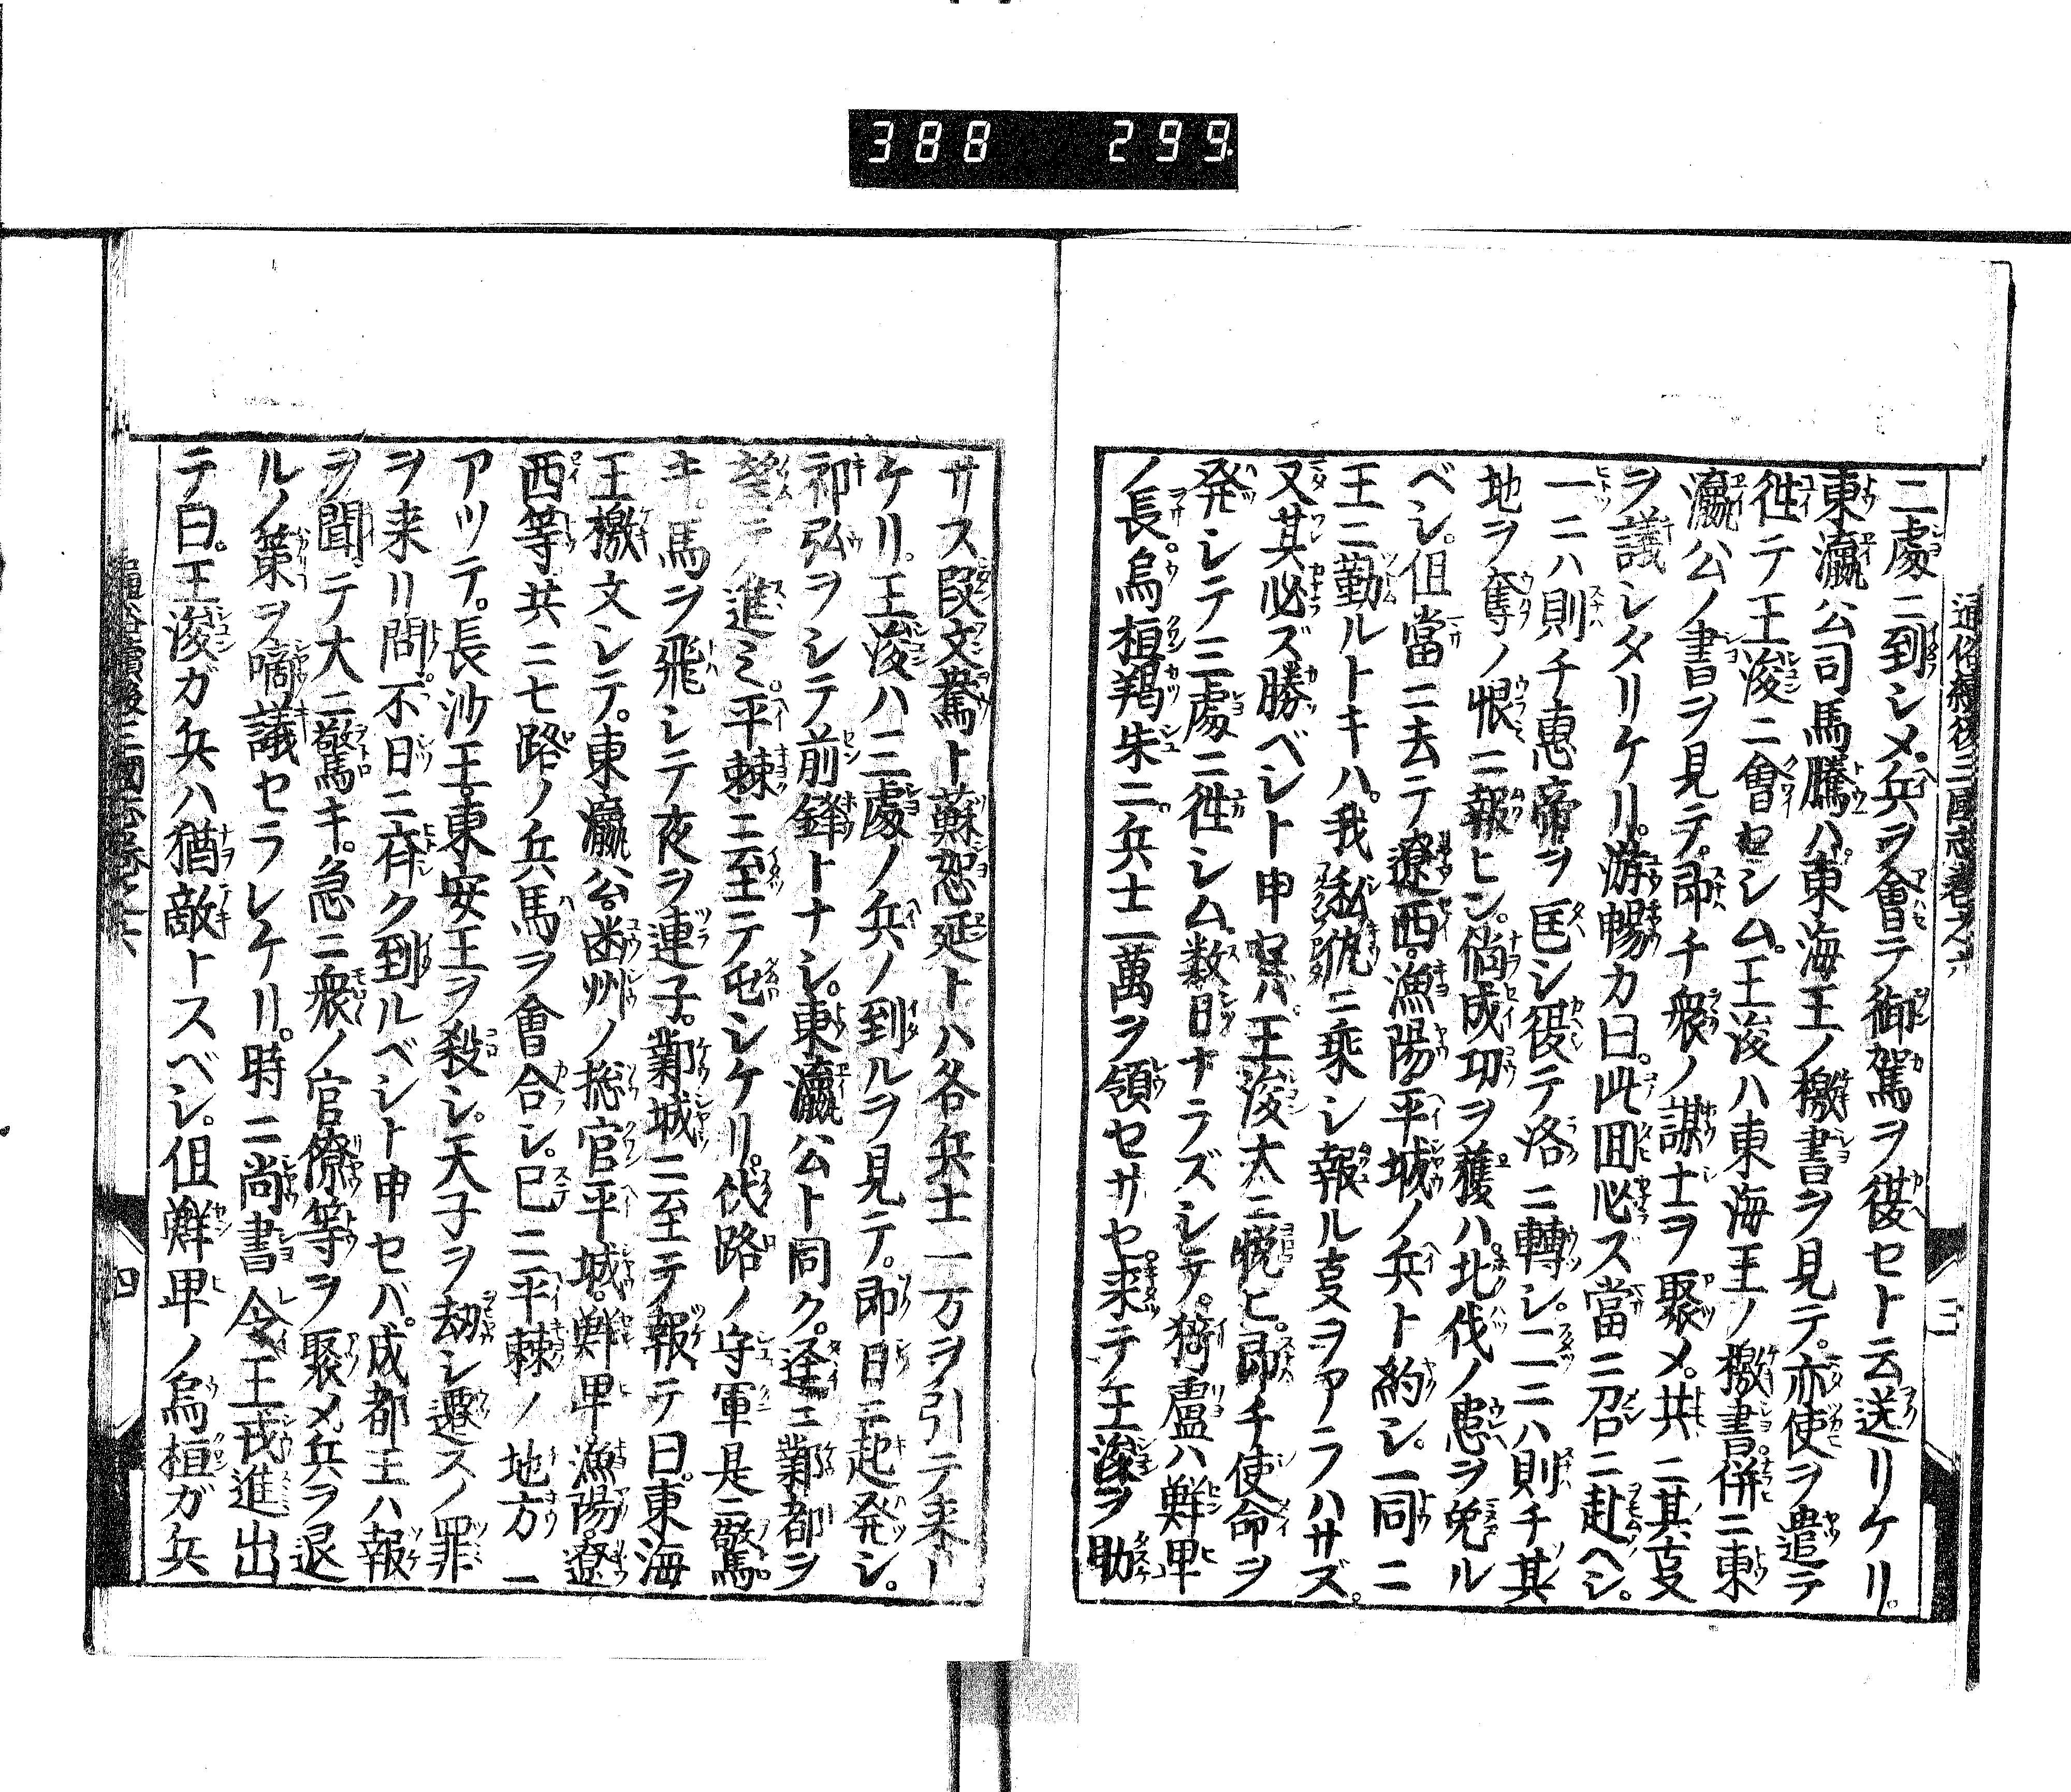 388 299
通俗續後三國志卷之六
二處ニ到シメ。兵ヲ會テ御駕ヲ復セト云送リケリ。
東瀛公司馬騰ハ。東海王ノ檄書ヲ見テ。亦使ヲ遣テ
徃テ王浚ニ會セシム。王浚ハ東海王ノ檄書。併ニ東
瀛公ノ書ヲ見テ。即チ衆ノ謀士ヲ聚メ。共ニ其支
ヲ議シタリケリ。游暢カ曰。此囬必ズ當ニ召ニ赴ヘシ。
一ニハ則チ惠帝ヲ匡シ復テ洛ニ轉シ。二ニハ則チ其
地ヲ奪ノ恨ニ報ヒン。倘成功ヲ獲ハ。北伐ノ患ヲ免ル
ベシ。但當ニ去テ遼西。漁陽。平城ノ兵ト約シ。一同ニ
王ニ勤ルトキハ。我私仇ニ乘シ報ル支ヲアラハサズ。
又其必ズ勝ベシト申セハ。王浚大ニ悦ヒ。即チ使命ヲ
発シテ三處ニ徃シム。数日ナラズシテ。猗盧ハ鮮卑
ノ長。烏桓羯朱ニ兵士二萬ヲ領セサセ。来テ王浚ヲ助
三
サス段文鴦ト蘇恕延トハ各兵士一万ヲ引テ来リ
ケリ。王浚ハ三處ノ兵ノ到ルヲ見テ。即日ニ起発シ。
祁弘ヲシテ前鋒トナシ。東瀛公ト同ク。逕ニ鄴都ヲ
望テ進ミ。平棘ニ至テ屯シケリ。伏路ノ守軍是ニ驚
キ。馬ヲ飛シテ夜ヲ連子。鄴城ニ至テ報テ曰。東海
王檄文シテ。東瀛公。幽州ノ総官平城。鮮卑漁陽。遼
西等共ニ七路ノ兵馬ヲ會合シ。已ニ平棘ノ地方ニ
アツテ。長沙王。東安王ヲ殺シ。天子ヲ劫シ遷スノ罪
ヲ来リ問。不日ニ齊ク到ルベシト申セバ。成都王ハ報
ヲ聞テ大ニ驚キ。急ニ衆ノ官僚等ヲ聚メ。兵ヲ退
ルノ策ヲ啇議セラレケリ。時ニ尚書令王戎進出
テ曰。王浚ガ兵ハ猶敵トスベシ。但鮮卑ノ烏桓ガ兵
四